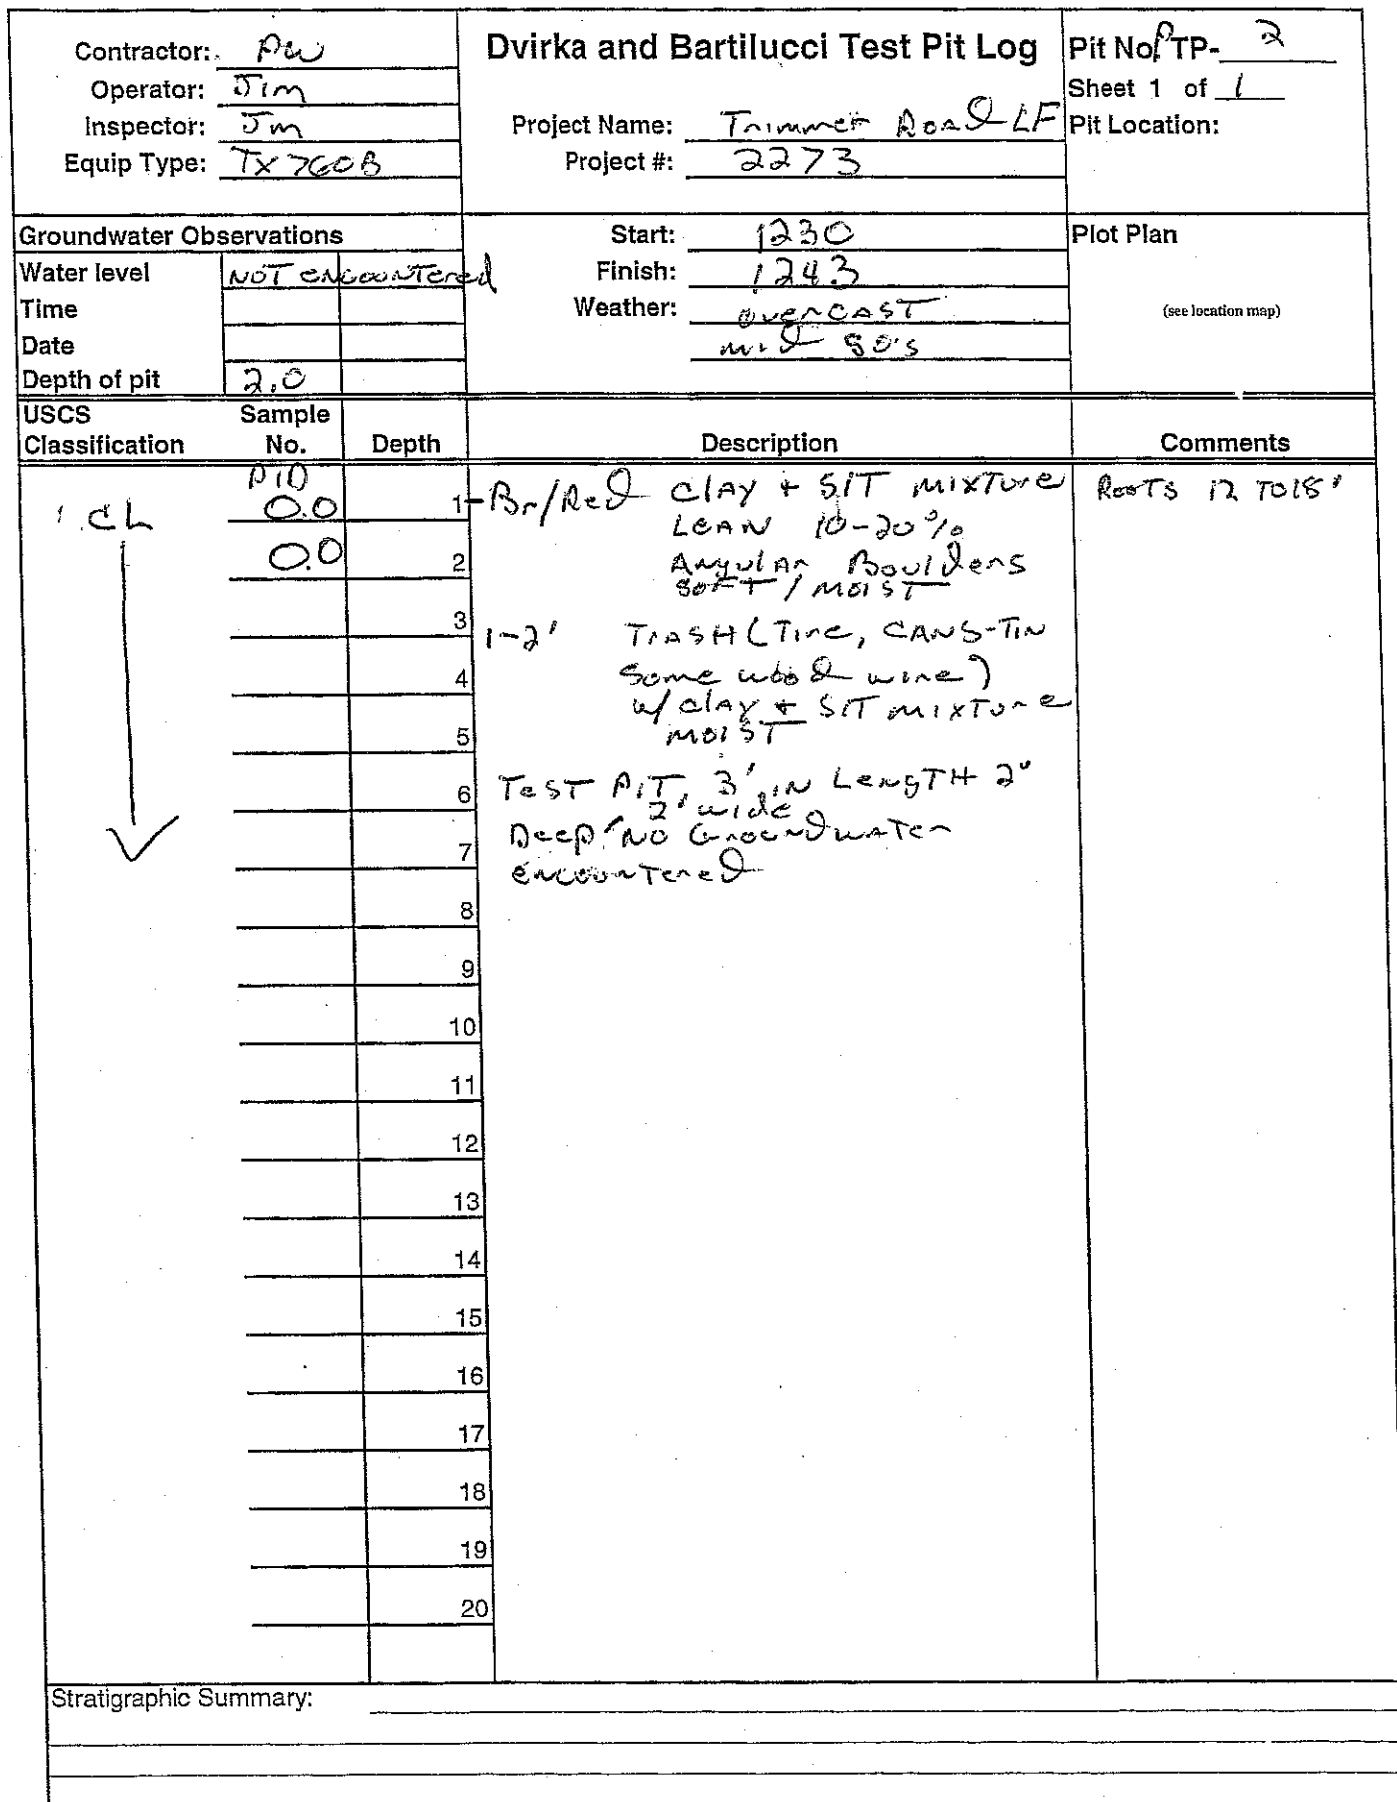 Contractor: PW
Operator: Jim
Inspector: Jm
Equip Type: TX 760B
Dvirka and Bartilucci Test Pit Log
Project Name: Trimmer Road LF
Project #: 2273
Pit No. PTP- 2
Sheet 1 of 1
Pit Location:
Groundwater Observations
Water level NOT encountered
Time
Date
Depth of pit 2.0
Start: 1230
Finish: 1243
Weather: overcast
mid 80's
Plot Plan
(see location map)
USCS Classification
Sample No.
Depth
Description
Comments
PID
CL 0.0 1 - Br/Red CLAY + SIT MIXTURE
LEAN 10-20%
0.0 2 Angular Boulders
SOFT / MOIST
Roots 12 TO 18'
3 1-2' TRASH (Tire, CANS-TIN
4 Some wood wire)
w/ clay + SIT mixture
5 MOIST
6 TEST PIT, 3' IN LENGTH 2'
2' wide
7 Deep. NO Groundwater
encountered
8
9
10
11
12
13
14
15
16
17
18
19
20
Stratigraphic Summary: